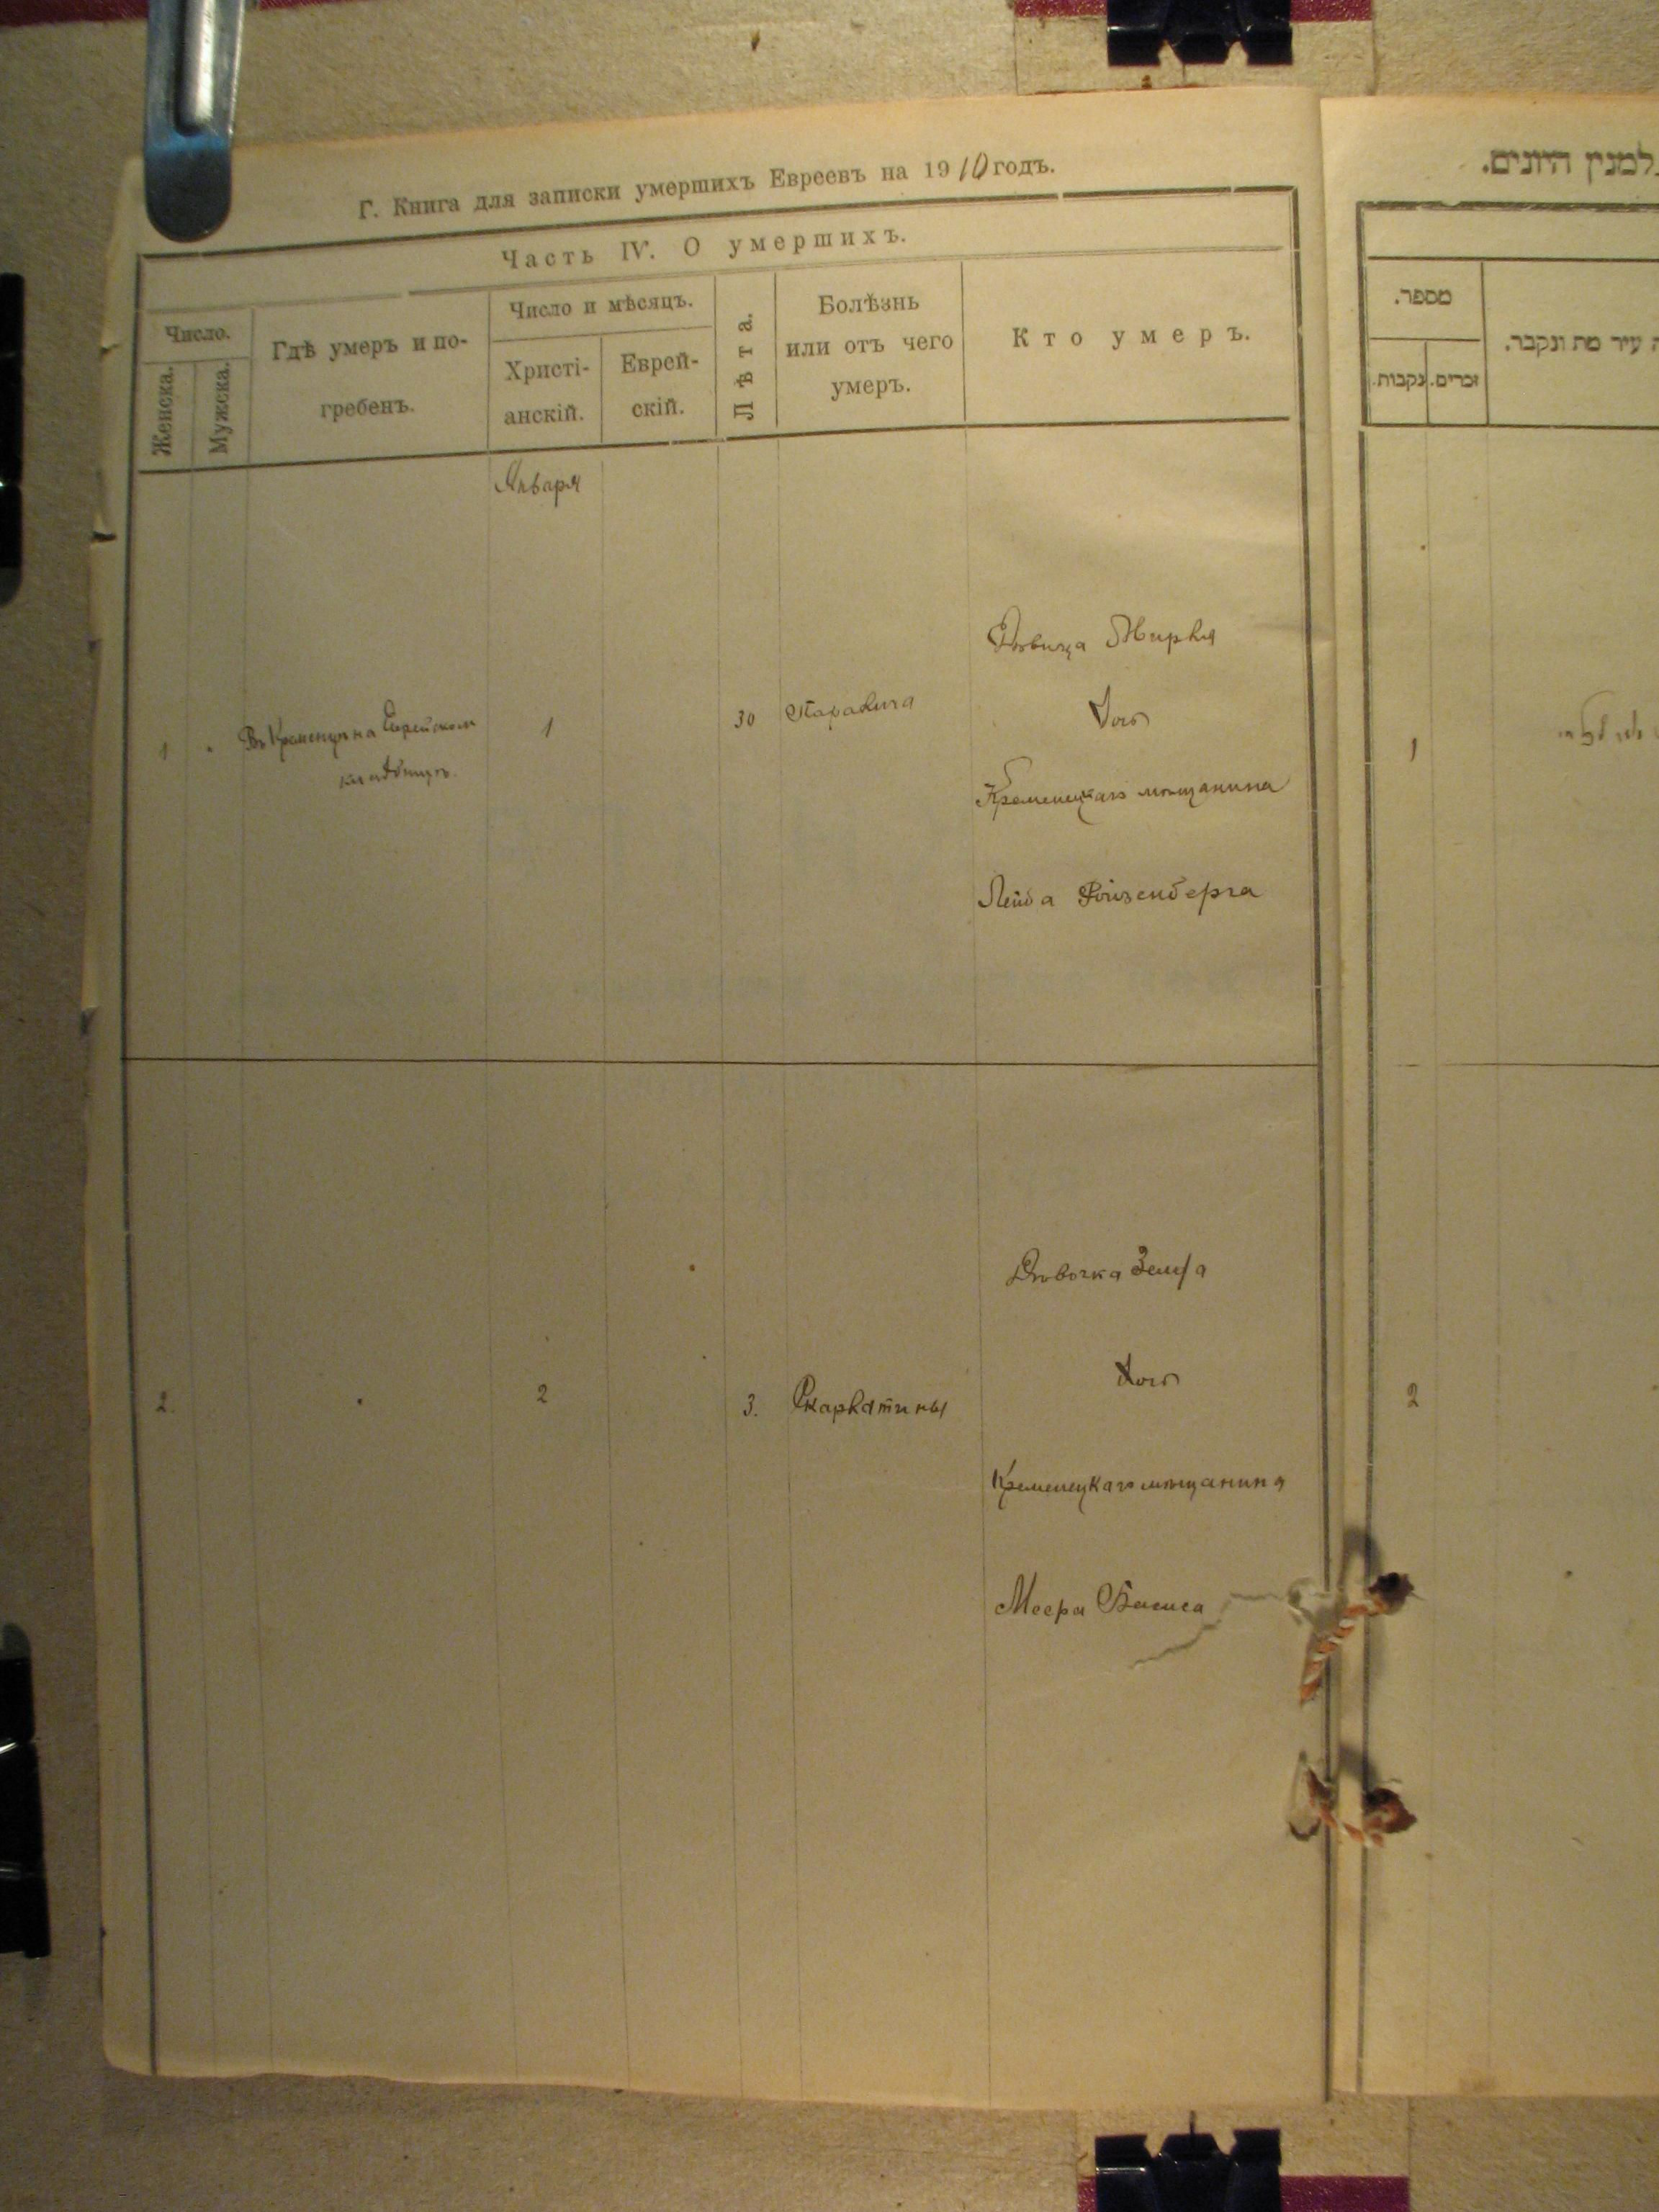 Г. Книга для записки умершихъ Евреевъ на 1910 годъ.
Часть IV. О умершихъ.
Число.
Женска.
Мужска.
Гдѣ умеръ и по-
гребенъ.
Число и мѣсяцъ.
Христі-
анскій.
Еврей-
скій.
Лѣта.
Болѣзнь
или отъ чего
умеръ.
Кто умеръ.
Января
1
Въ Кременцѣ на Еврейском
кладбищѣ.
1
30
Паралича
Дѣвица Мирля
Дочь
Кременецкаго мѣщанина
Лейба Ройзенберга
2.
2
3.
Скарлатины
Дѣвочка
Дочь
Кременецкаго мѣщанина
Меера
למנין היונים.
מספר.
נקבות.
זכרים.
עיר מת ונקבר.
1
2